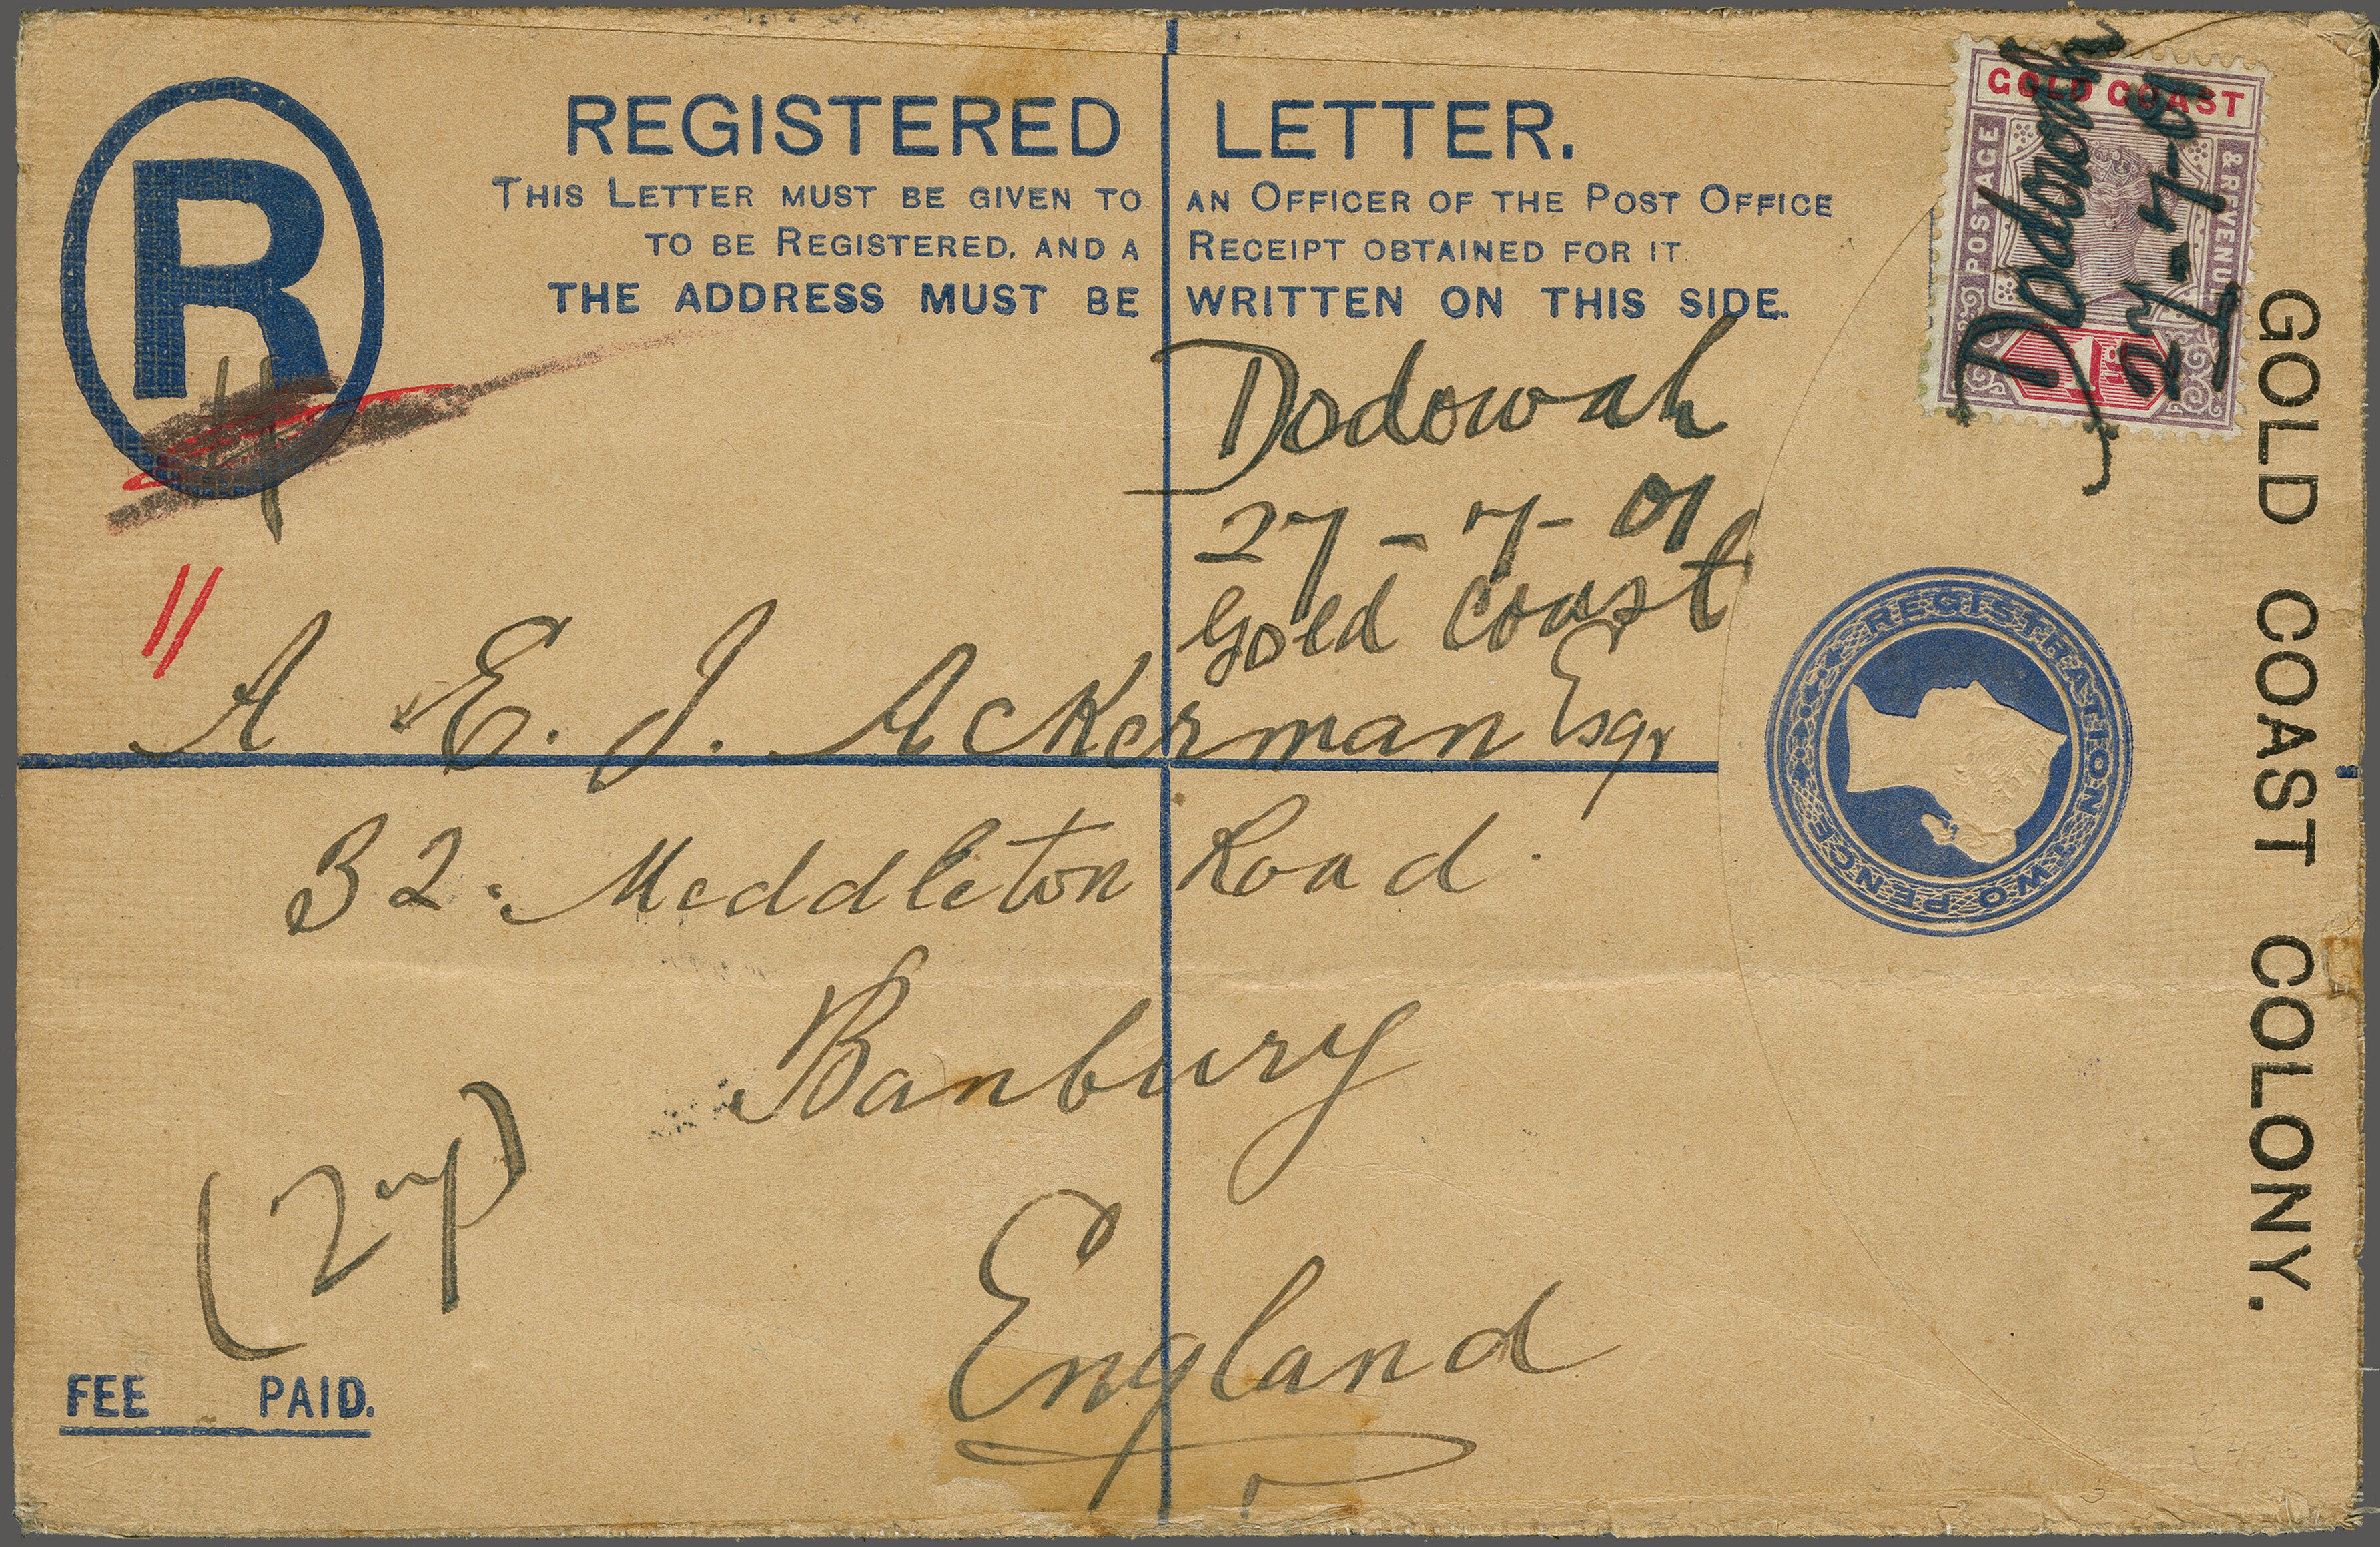 REGISTERED LETTER.
THIS LETTER MUST BE GIVEN TO AN OFFICER OF THE POST OFFICE
TO BE REGISTERED, AND A RECEIPT OBTAINED FOR IT.
THE ADDRESS MUST BE WRITTEN ON THIS SIDE.
R
GOLD COAST
POSTAGE
& REVENUE
1d
Dodowah
27-7-01
Dodowah
27-7-01
Gold Coast
11
A E. J. Ackerman Esqr
32. Meddleton Road
Banbury
England
REGISTRATION
TWO PENCE
GOLD COAST COLONY.
FEE PAID.